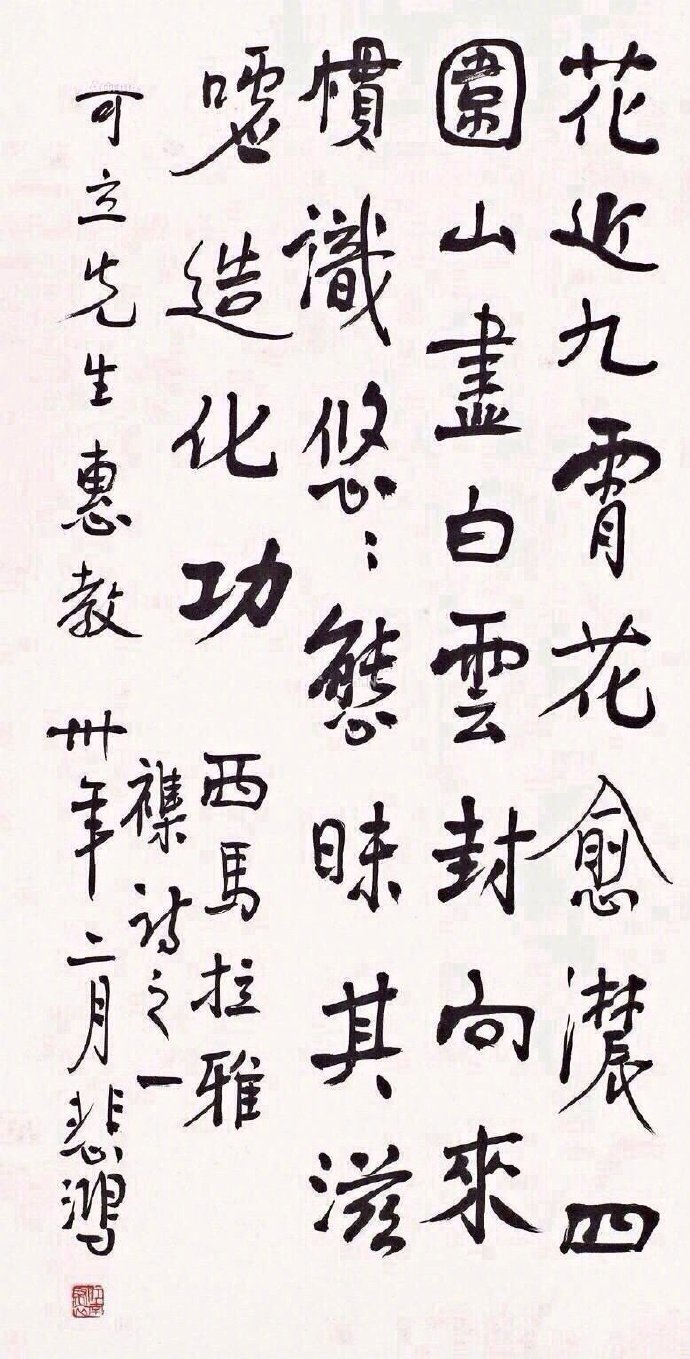 花近九霄花愈濃四
圍山盡白雲封向來
慣識悠〻態昧其滋
噓造化功
西馬拉雅
襍詩之一
可立先生惠教 卅年二月悲鴻